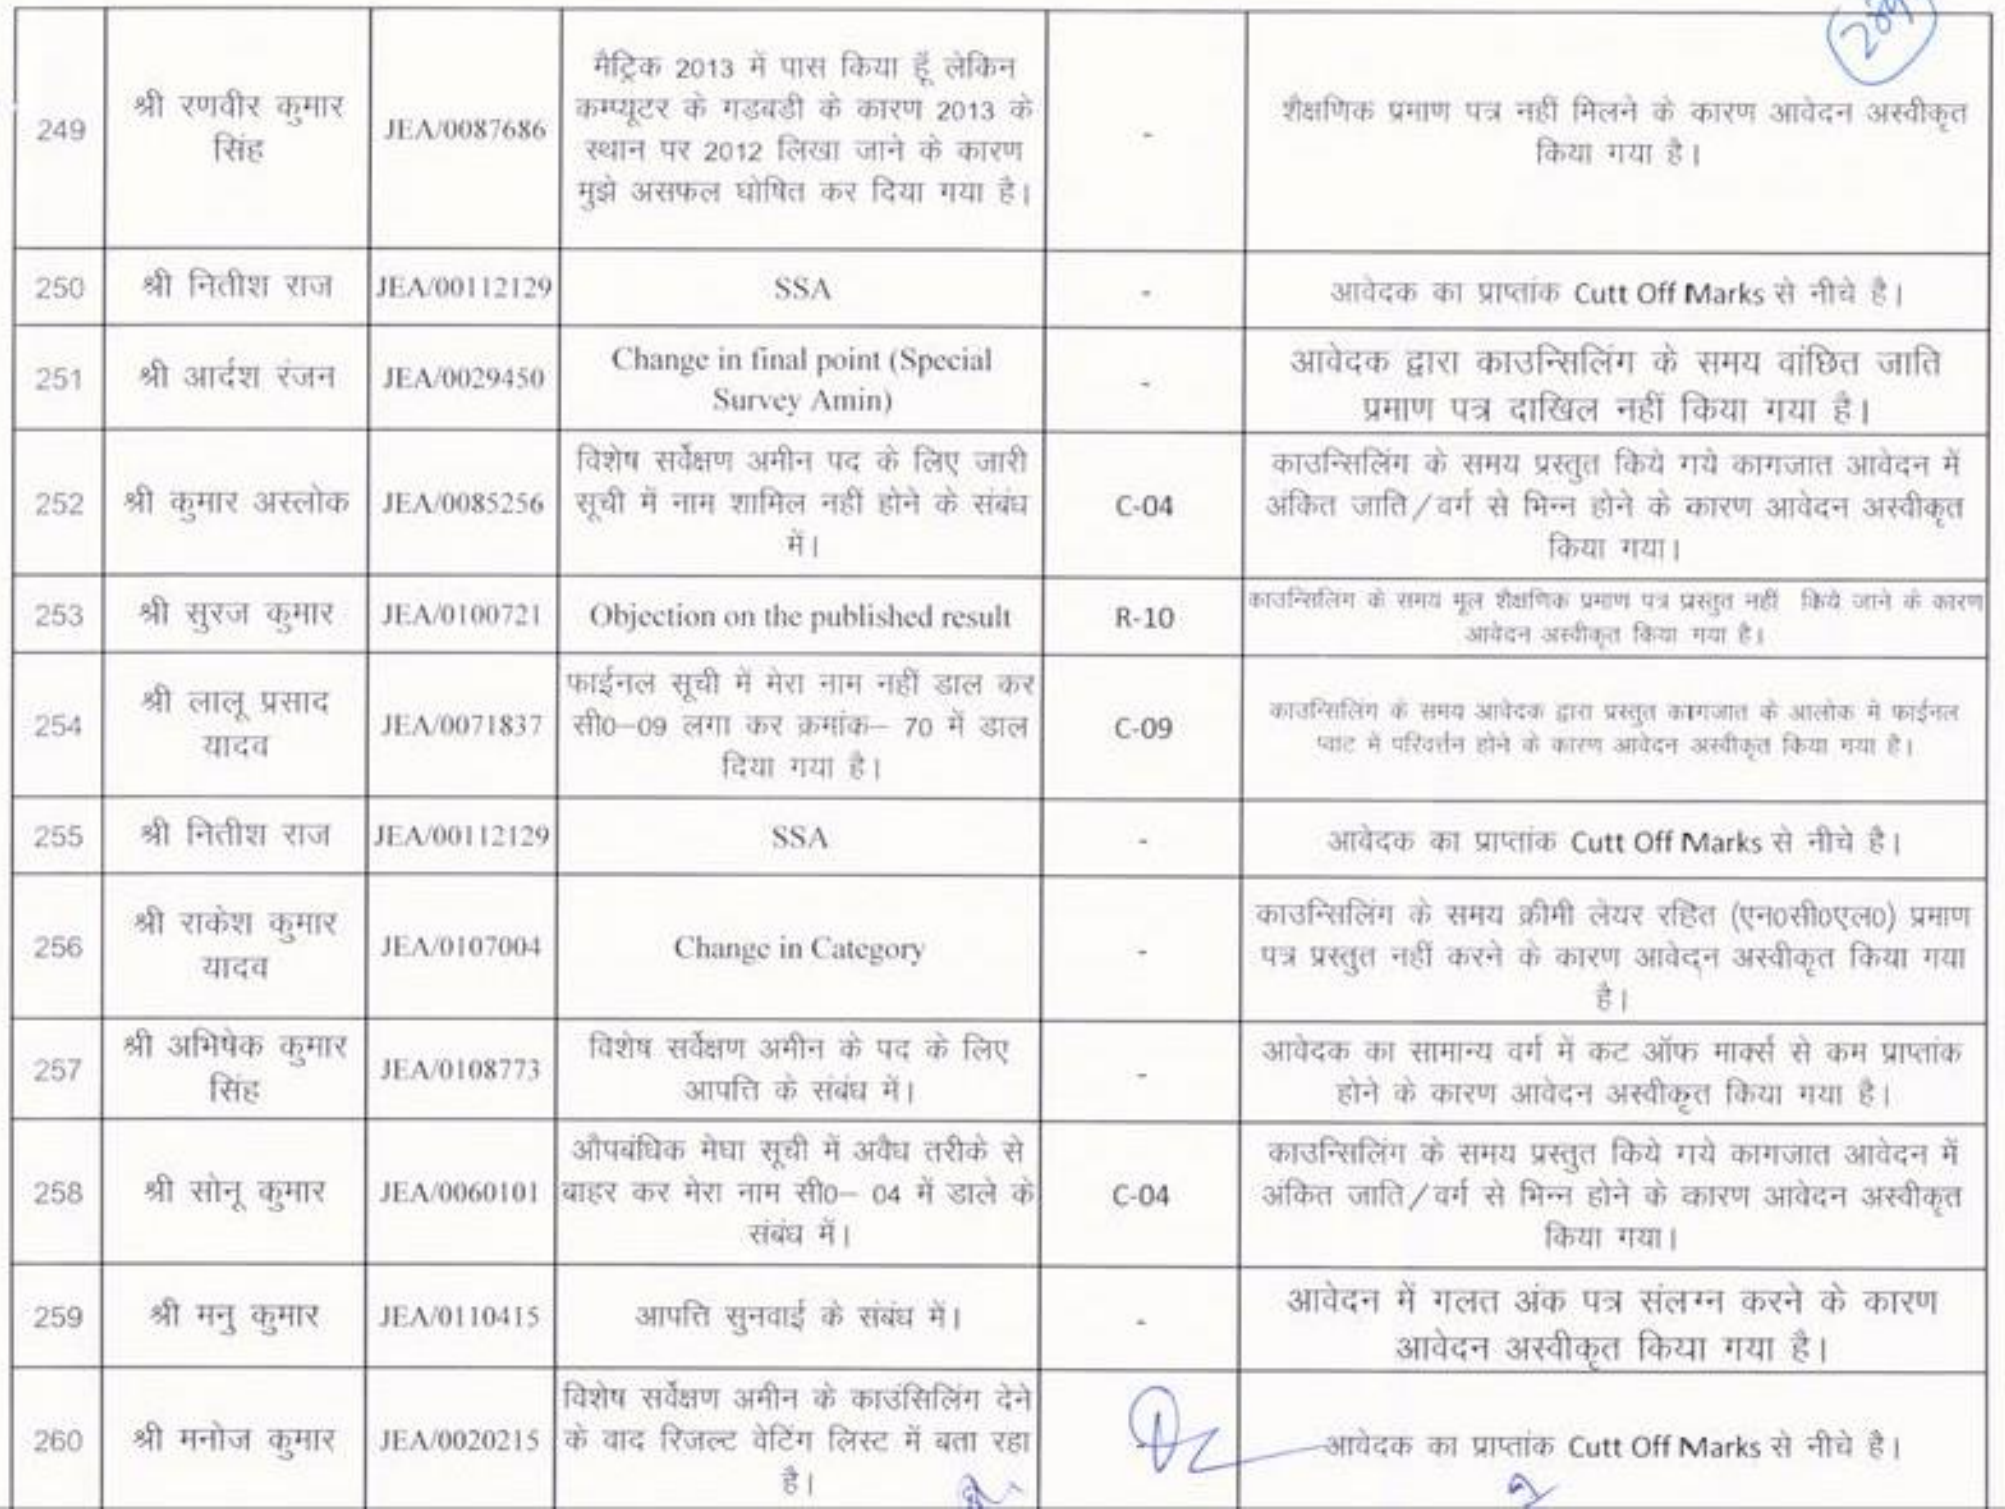 249
श्री रणवीर कुमार
सिंह
JEA/0087686
मैट्रिक 2013 में पास किया हूँ लेकिन
कम्प्यूटर के गडबडी के कारण 2013 के
स्थान पर 2012 लिखा जाने के कारण
मुझे असफल घोषित कर दिया गया है।
-
शैक्षणिक प्रमाण पत्र नहीं मिलने के कारण आवेदन अस्वीकृत
किया गया है।
250
श्री नितीश राज
JEA/00112129
SSA
-
आवेदक का प्राप्तांक Cutt Off Marks से नीचे है।
251
श्री आर्दश रंजन
JEA/0029450
Change in final point (Special
Survey Amin)
-
आवेदक द्वारा काउन्सिलिंग के समय वांछित जाति
प्रमाण पत्र दाखिल नहीं किया गया है।
252
श्री कुमार अस्लोक
JEA/0085256
विशेष सर्वेक्षण अमीन पद के लिए जारी
सूची में नाम शामिल नहीं होने के संबंध
में।
C-04
काउन्सिलिंग के समय प्रस्तुत किये गये कागजात आवेदन में
अंकित जाति/वर्ग से भिन्न होने के कारण आवेदन अस्वीकृत
किया गया।
253
श्री सुरज कुमार
JEA/0100721
Objection on the published result
R-10
काउन्सिलिंग के समय मूल शैक्षणिक प्रमाण पत्र प्रस्तुत नहीं किये जाने के कारण
आवेदन अस्वीकृत किया गया है।
254
श्री लालू प्रसाद
यादव
JEA/0071837
फाईनल सूची में मेरा नाम नहीं डाल कर
सी0-09 लगा कर क्रमांक- 70 में डाल
दिया गया है।
C-09
काउन्सिलिंग के समय आवेदक द्वारा प्रस्तुत कागजात के आलोक में फाईनल
प्वांट में परिवर्त्तन होने के कारण आवेदन अस्वीकृत किया गया है।
255
श्री नितीश राज
JEA/00112129
SSA
-
आवेदक का प्राप्तांक Cutt Off Marks से नीचे है।
256
श्री राकेश कुमार
यादव
JEA/0107004
Change in Category
-
काउन्सिलिंग के समय क्रीमी लेयर रहित (एन0सी0एल0) प्रमाण
पत्र प्रस्तुत नहीं करने के कारण आवेदन अस्वीकृत किया गया
है।
257
श्री अभिषेक कुमार
सिंह
JEA/0108773
विशेष सर्वेक्षण अमीन के पद के लिए
आपति के संबंध में।
-
आवेदक का सामान्य वर्ग में कट ऑफ मार्क्स से कम प्राप्तांक
होने के कारण आवेदन अस्वीकृत किया गया है।
258
श्री सोनू कुमार
JEA/0060101
औपबंधिक मेघा सूची में अवैध तरीके से
बाहर कर मेरा नाम सी0- 04 में डाले के
संबंध में।
C-04
काउन्सिलिंग के समय प्रस्तुत किये गये कागजात आवेदन में
अंकित जाति/वर्ग से भिन्न होने के कारण आवेदन अस्वीकृत
किया गया।
259
श्री मनु कुमार
JEA/0110415
आपत्ति सुनवाई के संबंध में।
-
आवेदन में गलत अंक पत्र संलग्न करने के कारण
आवेदन अस्वीकृत किया गया है।
260
श्री मनोज कुमार
JEA/0020215
विशेष सर्वेक्षण अमीन के काउंसिलिंग देने
के वाद रिजल्ट वेटिंग लिस्ट में बता रहा
है।
आवेदक का प्राप्तांक Cutt Off Marks से नीचे है।